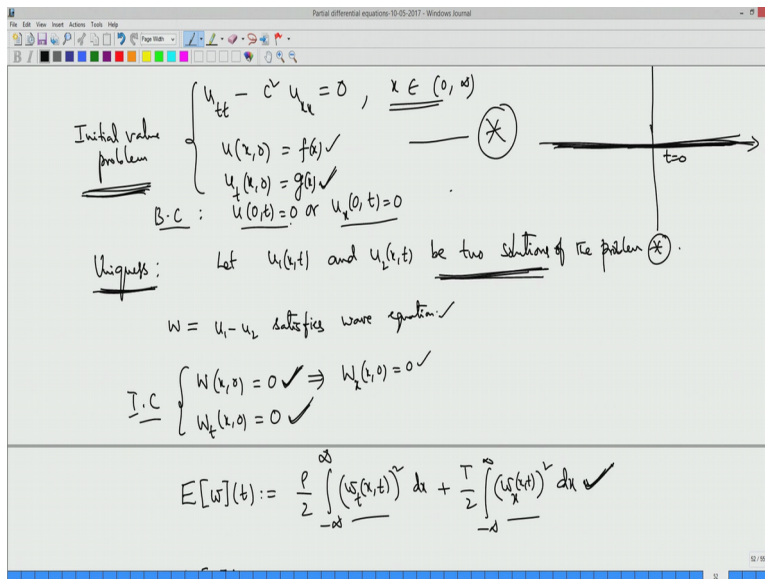 Partial differential equations-10-05-2017 - Windows Journal
File Edit View Insert Actions Tools Help
Page Width
B I
Initial value problem
u_tt − c² u_xx = 0 , x ∈ (0, ∞)
u(x,0) = f(x) ✓ —— (*)
u_t(x,0) = g(x) ✓
t=0
B.C : u(0,t)=0 or u_x(0,t)=0
Uniqness : Let u₁(x,t) and u₂(x,t) be two solutions of the problem (*).
W = u₁-u₂ satisfies wave equation. ✓
I.C { W(x,0) = 0 ✓ ⇒ W_x(x,0) = 0 ✓
W_t(x,0) = 0 ✓
E[w](t) := ρ/2 ∫_{-∞}^{∞} (w_t(x,t))² dx + T/2 ∫_{-∞}^{∞} (w_x(x,t))² dx ✓
52 / 55
52